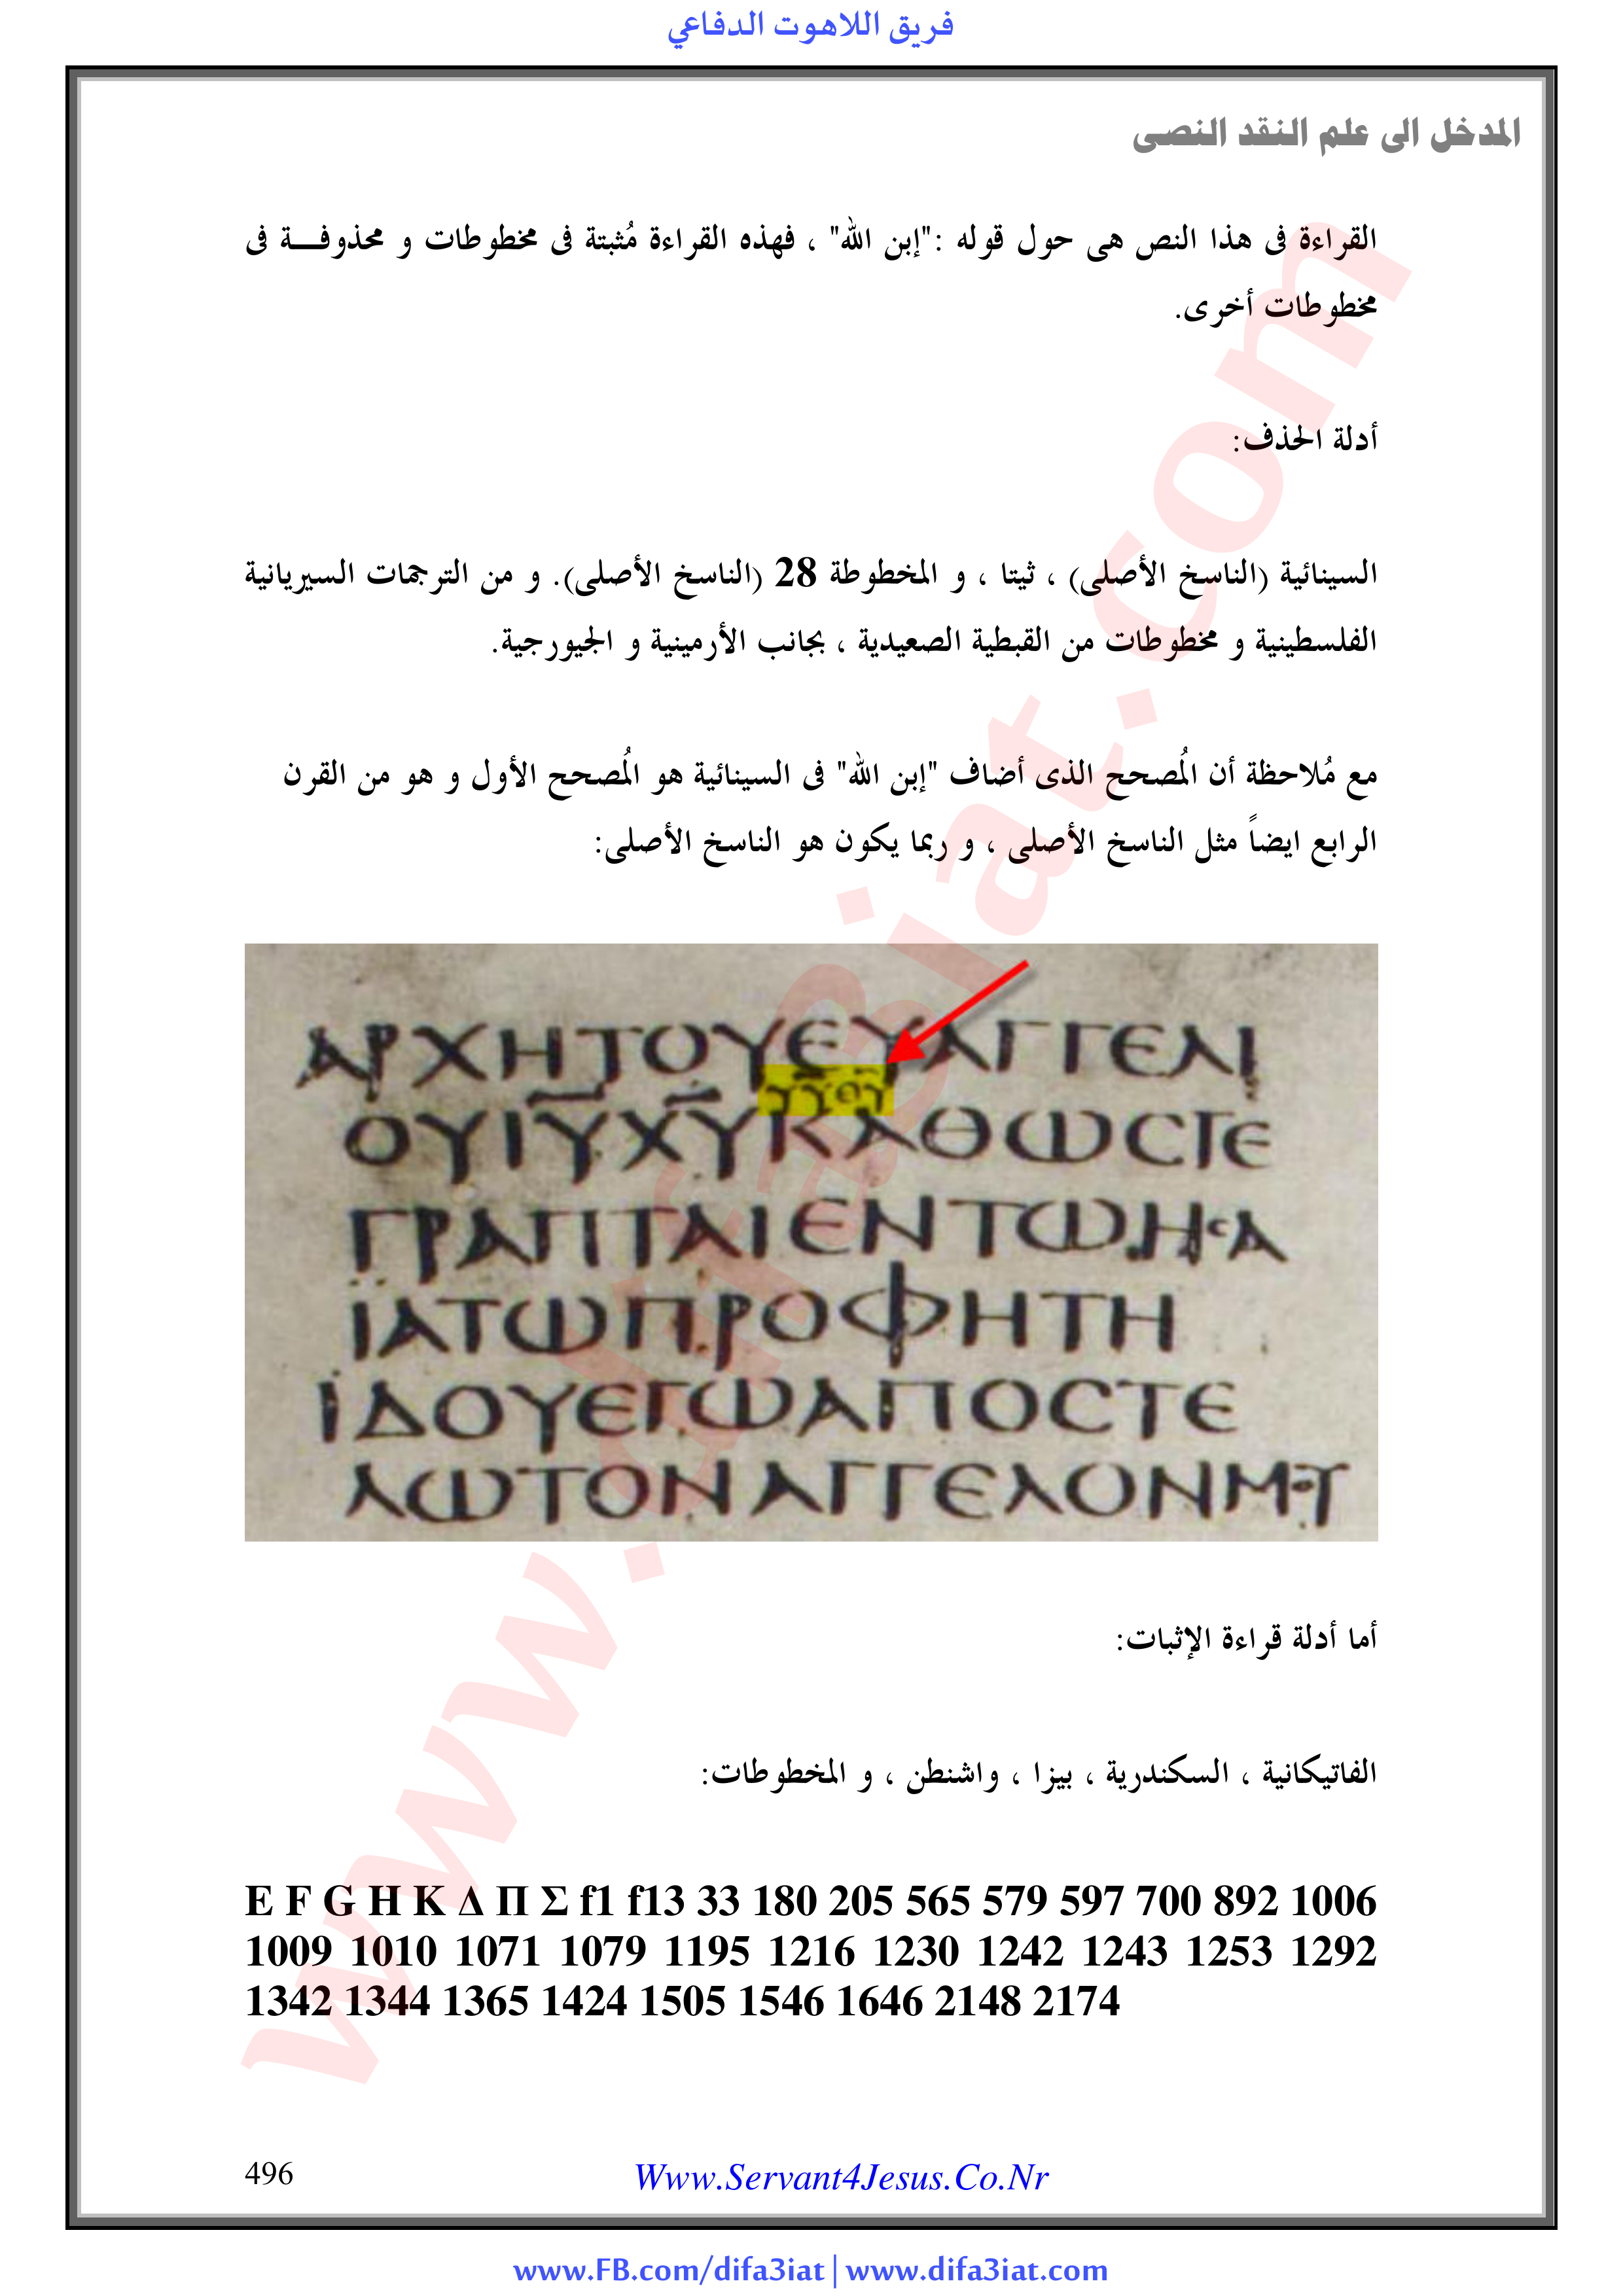 فريق اللاهوت الدفاعي
المدخل الى علم النقد النصى
القراءة فى هذا النص هى حول قوله :"إبن الله" ، فهذه القراءة مُثبتة فى مخطوطات و محذوفـــة فى
مخطوطات أخرى.
أدلة الحذف:
السينائية (الناسخ الأصلى) ، ثيتا ، و المخطوطة 28 (الناسخ الأصلى). و من الترجمات السيريانية
الفلسطينية و مخطوطات من القبطية الصعيدية ، بجانب الأرمينية و الجيورجية.
مع مُلاحظة أن المُصحح الذى أضاف "إبن الله" فى السينائية هو المُصحح الأول و هو من القرن
الرابع ايضاً مثل الناسخ الأصلى ، و ربما يكون هو الناسخ الأصلى:
ΑΡΧΗΤΟΥΕΥΑΓΓΕΛΙ
ΥΥΘΥ
ΟΥΙΥΧΥΚΑΘΩϹΓΕ
ΓΡΑΠΤΑΙΕΝΤΩΗϹΑ
ΪΑΤΩΠΡΟΦΗΤΗ
ΪΔΟΥΕΓΩΑΠΟϹΤΕ
ΛΩΤΟΝΑΓΓΕΛΟΝΜΟΥ
أما أدلة قراءة الإثبات:
الفاتيكانية ، السكندرية ، بيزا ، واشنطن ، و المخطوطات:
E F G H K Δ Π Σ f1 f13 33 180 205 565 579 597 700 892 1006
1009 1010 1071 1079 1195 1216 1230 1242 1243 1253 1292
1342 1344 1365 1424 1505 1546 1646 2148 2174
www.difa3iat.com
496
Www.Servant4Jesus.Co.Nr
www.FB.com/difa3iat | www.difa3iat.com